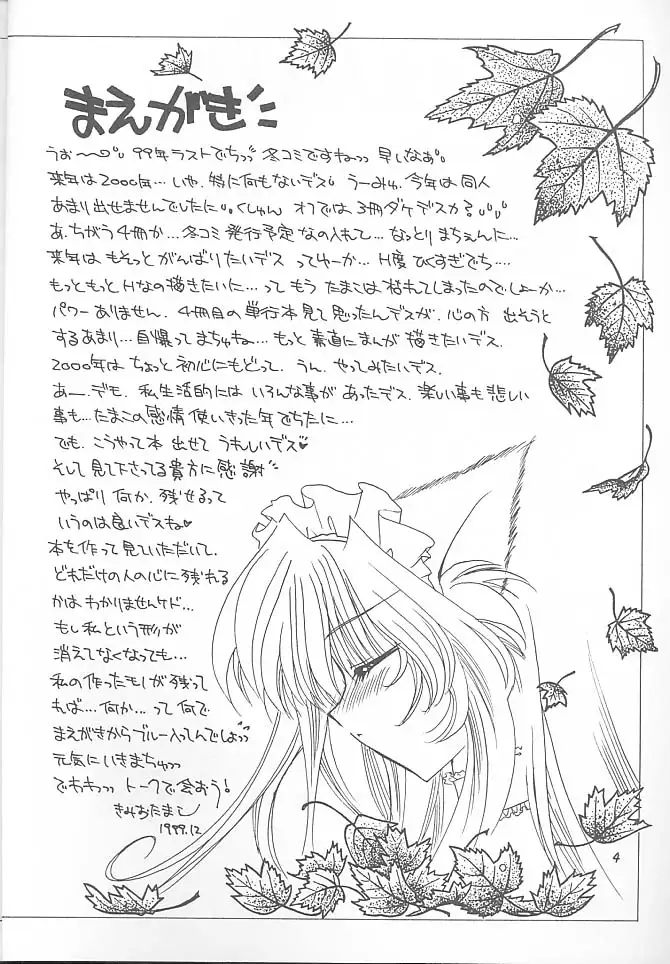 まえがき
うぉ〜〜。99年ラストでちっ 冬コミですねっ 早いなぁ。
来年は2000年…いや、特に何もないデス うーみゅ、今年は同人
あまり出せませんでちたに。くしゅん オフでは3冊ダケデスカ?
あ、ちがう4冊か…冬コミ発行予定なの入れて…なっとりまちぇんに…
来年はもそっとがんばりたいデス ってゆーか…H度ひくすぎでち…
もっともっとHなの描きたいに…ってもうたまこは枯れてしまったのでしょーか…
パワーありません、4冊目の単行本見て思ったんデスが、心の方 出そうと
するあまり…自爆ってまちゅね…もっと素直にまんが描きたいデス、
2000年はちょっと初心にもどって、うん、やってみたいデス、
あー、デモ、私生活的にはいろんな事があったデス、楽しい事も悲しい
事も…たまこの感情使いきった年でちたに…
でも、こうやって本出せてうれしいデス♥
そして見て下さってる貴方に感謝
やっぱり何か、残せるって
いうのは良いデスね♥
本を作って見ていただいて、
どれだけの人の心に残れる
かはわかりませんケド…
もし私という形が
消えてなくなっても…
私の作ったモノが残って
れば…何か…って何で
まえがきからブルー入ってんでしょっ
元気にいきまちゅっ
でわわっっ トークで会おう!
きみおたまこ
1999.12
4